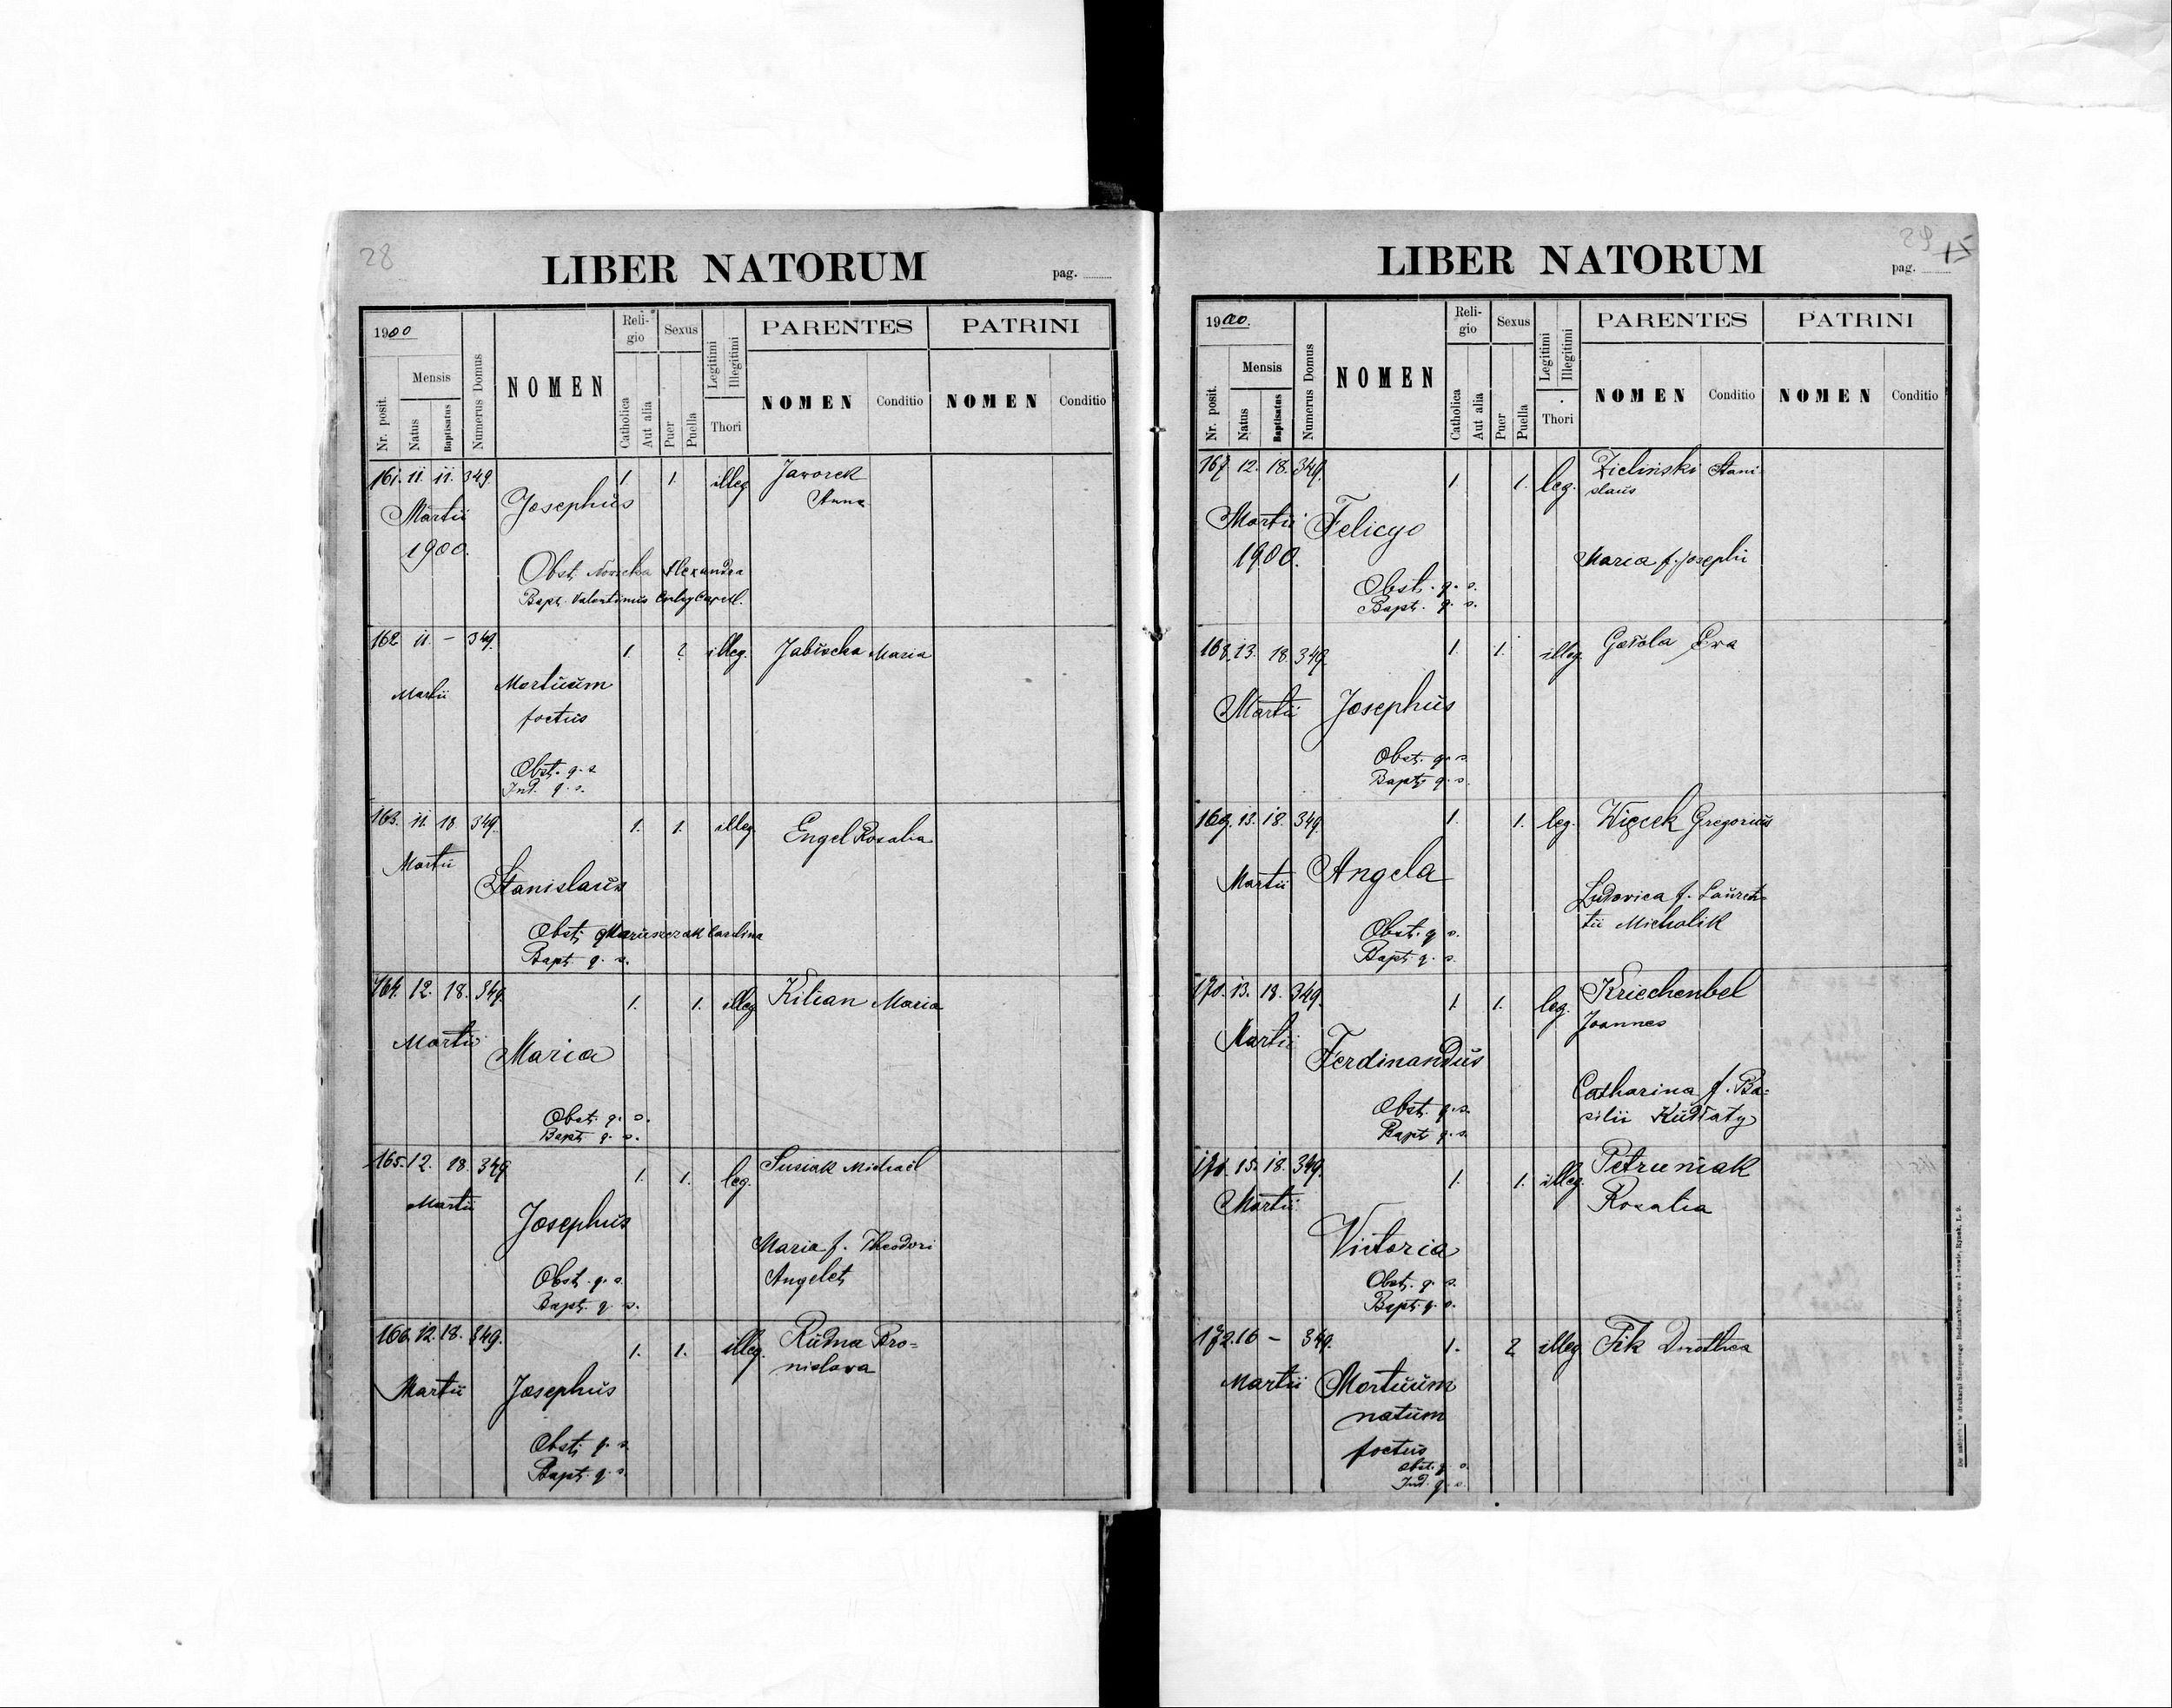 28
LIBER NATORUM
pag.
1900
Nr. posit.
Mensis
Natus
Baptisatus
Numerus Domus
NOMEN
Reli-
gio
Catholica
Aut alia
Sexus
Puer
Puella
Legitimi
Illegitimi
Thori
PARENTES
NOMEN
Conditio
PATRINI
NOMEN
Conditio
161. 11. 11. 349 1. 1. illeg. Jaworek
Anna
Martii Josephus
1900.
Obst. Nowicka Alexandra
Bapt. Valentinus Capell.
162 11. - 349. 1. 2 illeg. Maria
Martii Mortuum
foetus
Obst. q. s.
Ind. q. s.
163. 11. 18 349. 1. 1. illeg. Engel Rosalia
Martii
Stanislaus
Obst. Maruszczak Carolina
Bapt. q. s.
164. 12. 18. 349. 1. 1. illeg. Kilian Maria
Martii Maria
Obst. q. s.
Bapt. q. s.
165. 12. 18. 349 1. 1. leg. Susiak Michaël
Martii
Josephus
Maria f. Theodori
Angelet
Obst. q. s.
Bapt. q. s.
166. 12. 18. 349. 1. 1. illeg. Rudna Bro=
nislava
Martii Josephus
Obst. q. s.
Bapt. q. s.
29
15
LIBER NATORUM
pag.
1900.
Nr. posit.
Mensis
Natus
Baptisatus
Numerus Domus
NOMEN
Reli-
gio
Catholica
Aut alia
Sexus
Puer
Puella
Legitimi
Illegitimi
Thori
PARENTES
NOMEN
Conditio
PATRINI
NOMEN
Conditio
167. 12. 18. 349. 1. 1. leg. Zieliński Stani
slaus
Martii Felicya
1900.
Maria f. Josephi
Obst. q. s.
Bapt. q. s.
168. 13. 18. 349. 1. 1. illeg. Eva
Martii Josephus
Obst. q. s.
Bapt. q. s.
169. 13. 18. 349. 1. 1. leg. Więcek Gregorius
Martii Angela
Ludovica f. Lauren-
tii Micholik
Obst. q. s.
Bapt. q. s.
170. 13. 18. 349. 1. 1. leg. Kriechenbel
Joannes
Martii
Ferdinandus
Catharina f. Ba=
silii Kudłaty
Obst. q. s.
Bapt. q. s.
171. 15. 18. 349. 1. 1. illeg. Petruniak
Rosalia
Martii
Victoria
Obst. q. s.
Bapt. q. s.
172. 16 - 349. 1. 2 illeg. Fik Dorothea
Martii Mortuum
natum
foetus
Obst. q. s.
Ind. q. s.